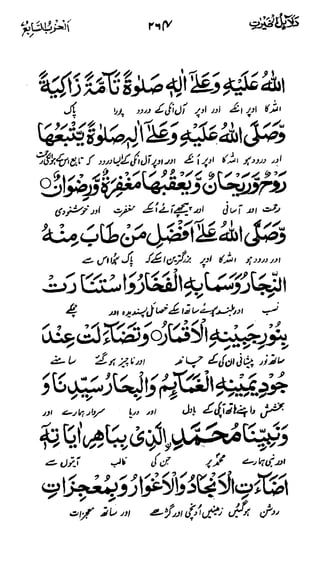 دلائل الخیرات ۲۶۷ الحزب السابع
اللهُ عَلَيْهِ وَعَلٰٓى اٰلِهٖ صَلٰوةً تَآمَّةً زَاكِيَةً
اللہ کا اوپر انکے اور اوپر آل انکی کے درود پورا پاک
وَصَلَّى اللهُ عَلَيْهِ وَعَلٰٓى اٰلِهٖ صَلٰوةً يَتْبَعُهَا
اور درود ہو اللہ کا اوپر انکے اور اوپر آل انکی کے ایسا درود کہ تابع اس کے ہو
رَوْحٌ وَّرَيْحَانٌ وَّيَعْقُبُهَا مَغْفِرَةٌ وَّرِضْوَانٌ ○
رحمت اور آسانی اور پیچھے آئے اُسکے مغفرت اور خوشنودی
وَصَلَّى اللهُ عَلٰٓى اَفْضَلِ مَنْ طَابَ مِنْهُ
اور درود ہو اللہ کا اوپر بزرگترین اسکے کہ پاک ہوا اس سے
النِّجَارُ وَسَمَابِهِ الْفَخَارُ وَاسْتَنَارَتْ
نسب اور بلند ہوئے ساتھ اسکے خصائل پسندیدہ اور چمکے
بِنُوْرِ جَبِيْنِهِ الْاَقْمَارُ ○ وَتَضَآءَلَتْ عِنْدَ
ساتھ نور پیشانی ان کی کے چاند اور ناچیز ہو گئے سامنے
جُوْدِ يَمِيْنِهِ الْغَمَآئِمُ وَالْبِحَارُ سَيِّدِنَا وَ
بخشش داہنے ہاتھ انکی کے بادل اور دریا سردار ہمارے اور
وَنَبِيِّنَا مُحَمَّدِ ۣالَّذِىْ بِبَاهِرِ اٰيَاتِهٖ
اور نبی ہمارے محمد پر جن کی غالب آیتوں سے
اَضَآءَتِ الْاَنْجَادُ وَالْاَغْوَارُ وَبِمُعْجِزَاتِ
روشن ہو گئیں زمینیں اونچی اور گڑھے اور ساتھ معجزات